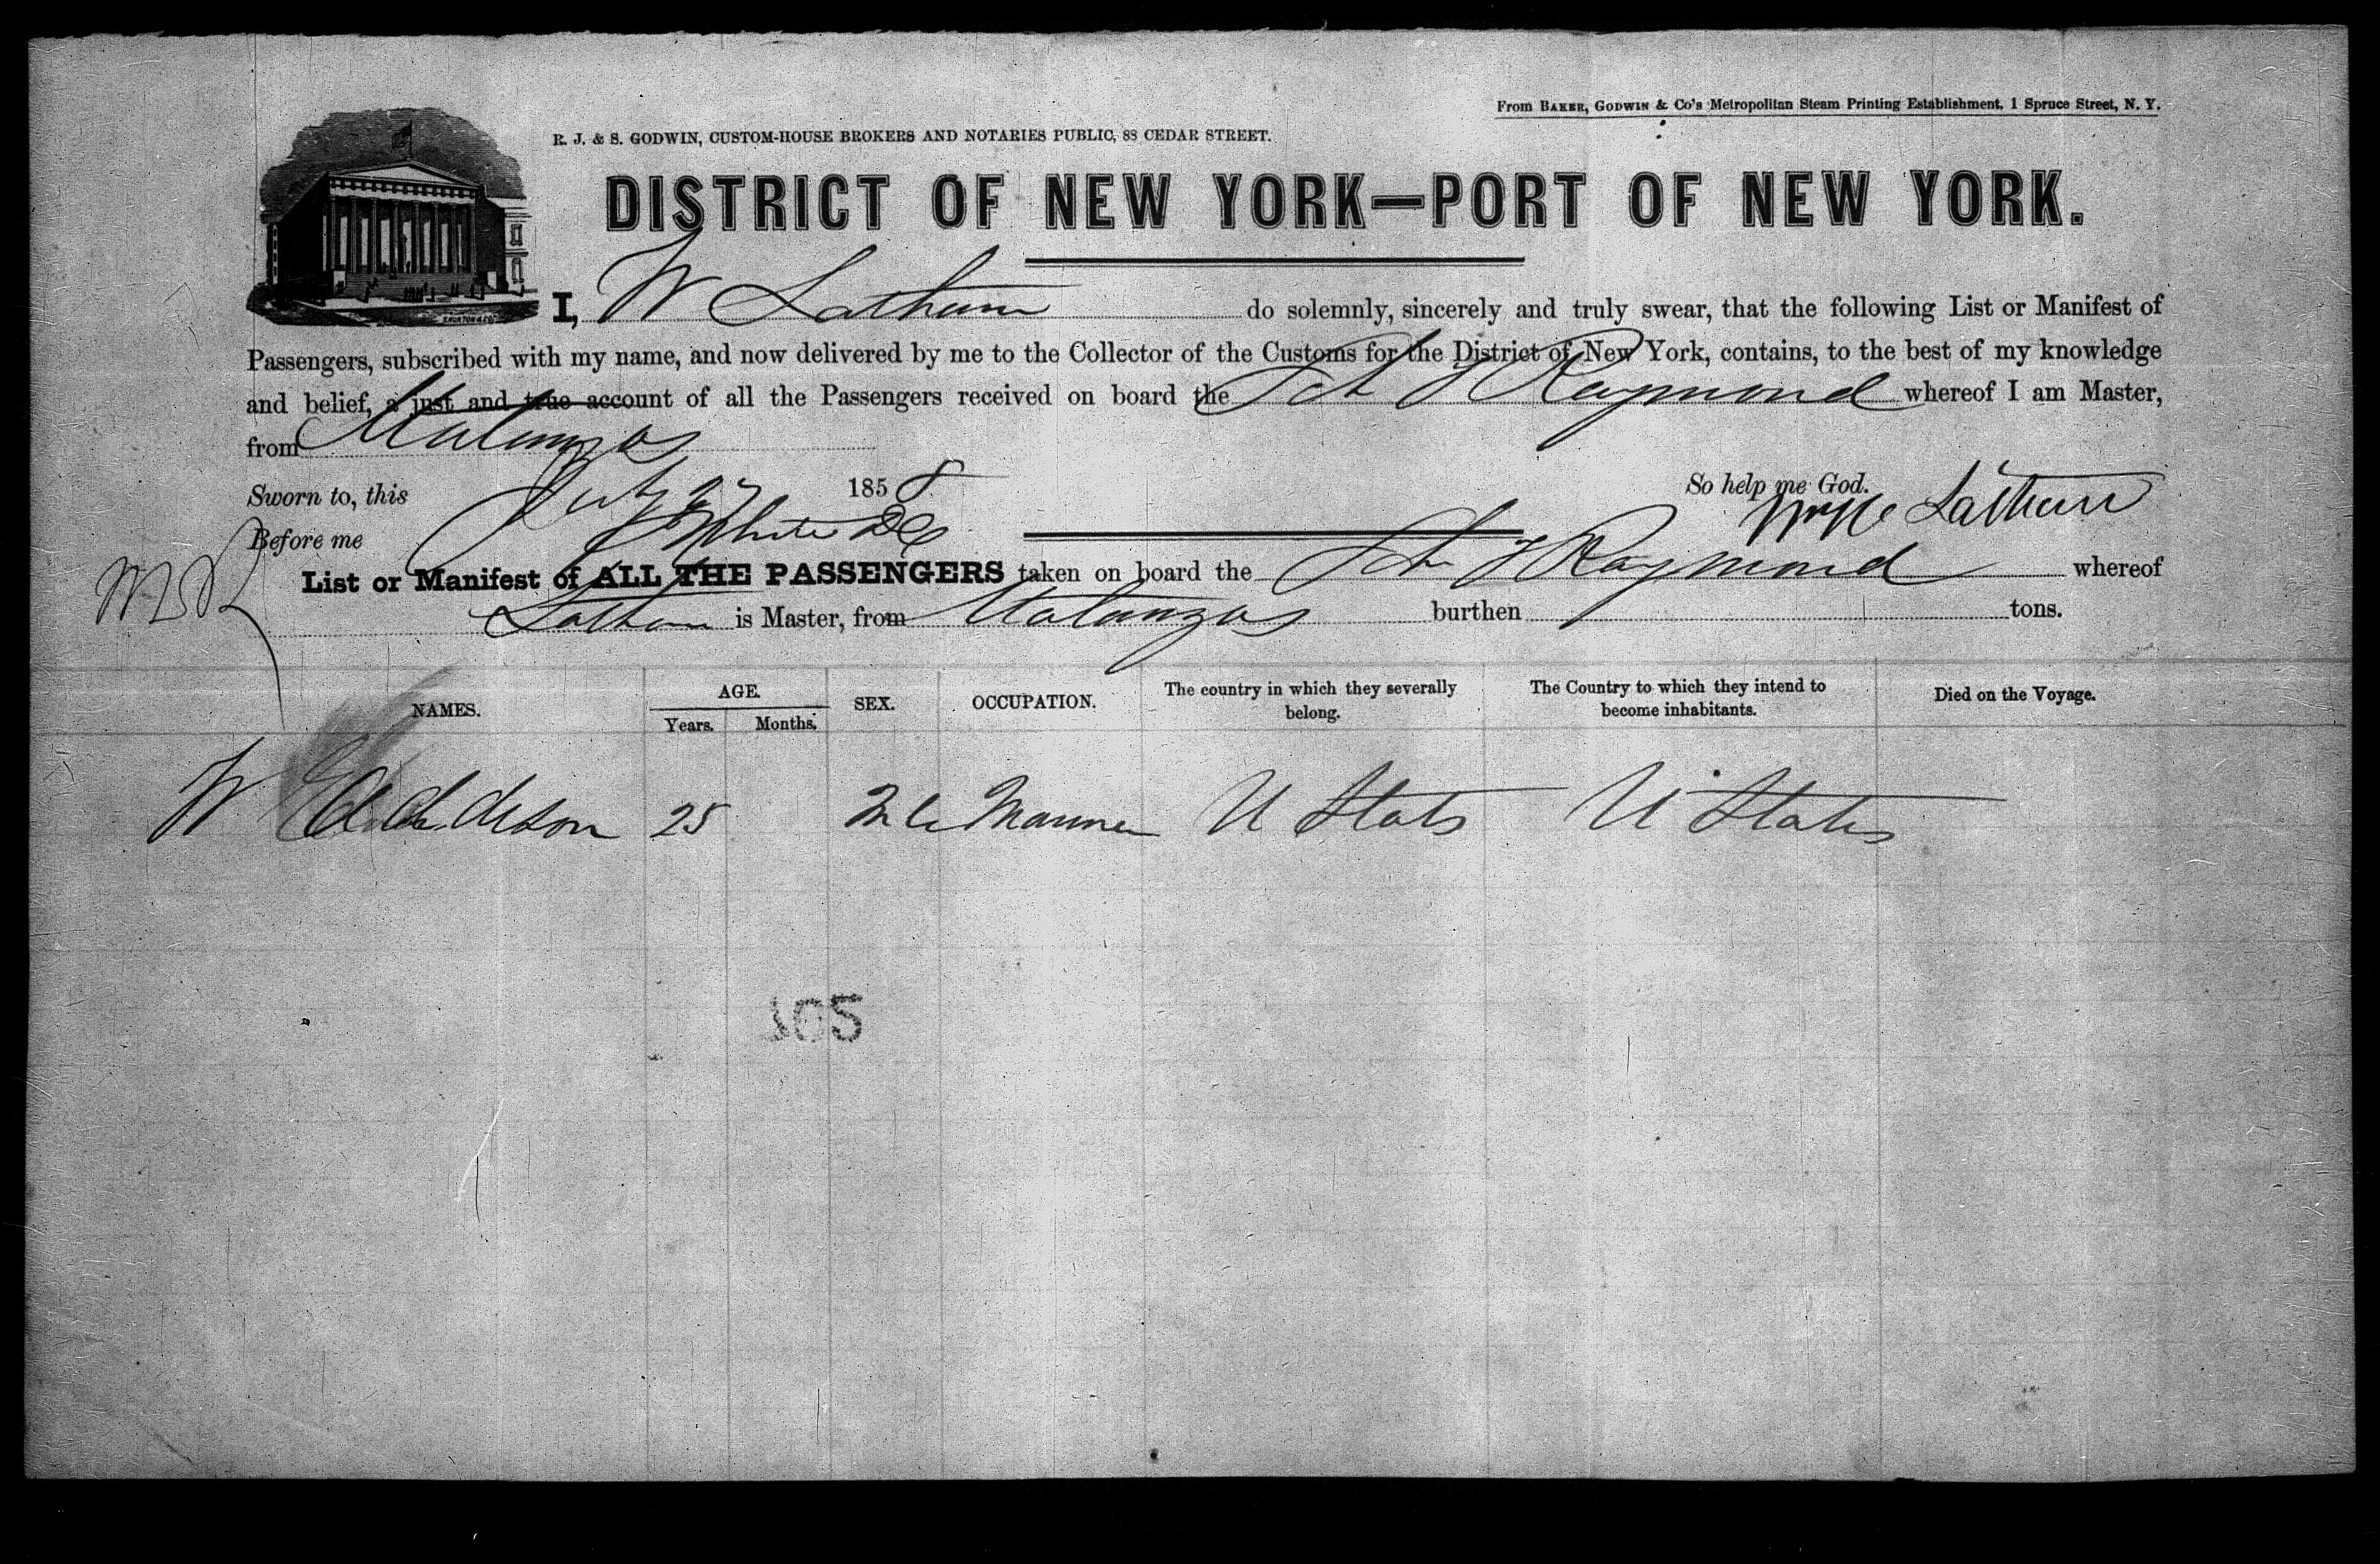 From BAKER, GODWIN & Co's Metropolitan Steam Printing Establishment, 1 Spruce Street, N. Y.
R. J. & S. GODWIN, CUSTOM-HOUSE BROKERS AND NOTARIES PUBLIC, 88 CEDAR STREET.
DISTRICT OF NEW YORK—PORT OF NEW YORK.
I, W Latham do solemnly, sincerely and truly swear, that the following List or Manifest of
Passengers, subscribed with my name, and now delivered by me to the Collector of the Customs for the District of New York, contains, to the best of my knowledge
and belief, a just and true account of all the Passengers received on board the Sch Raymond whereof I am Master,
from Matanzas
Sworn to, this July 27 1858 So help me God.
Before me White Latham
List or Manifest of ALL THE PASSENGERS taken on board the Sch Raymond whereof
Latham is Master, from Matanzas burthen tons.
NAMES. AGE. Years. Months. SEX. OCCUPATION. The country in which they severally belong. The Country to which they intend to become inhabitants. Died on the Voyage.
W 25 Mariner U States U States
105